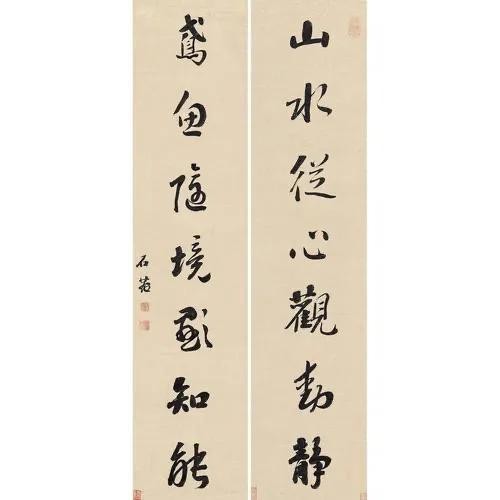 山水從心觀動靜
鳶魚隨境知能
石菴